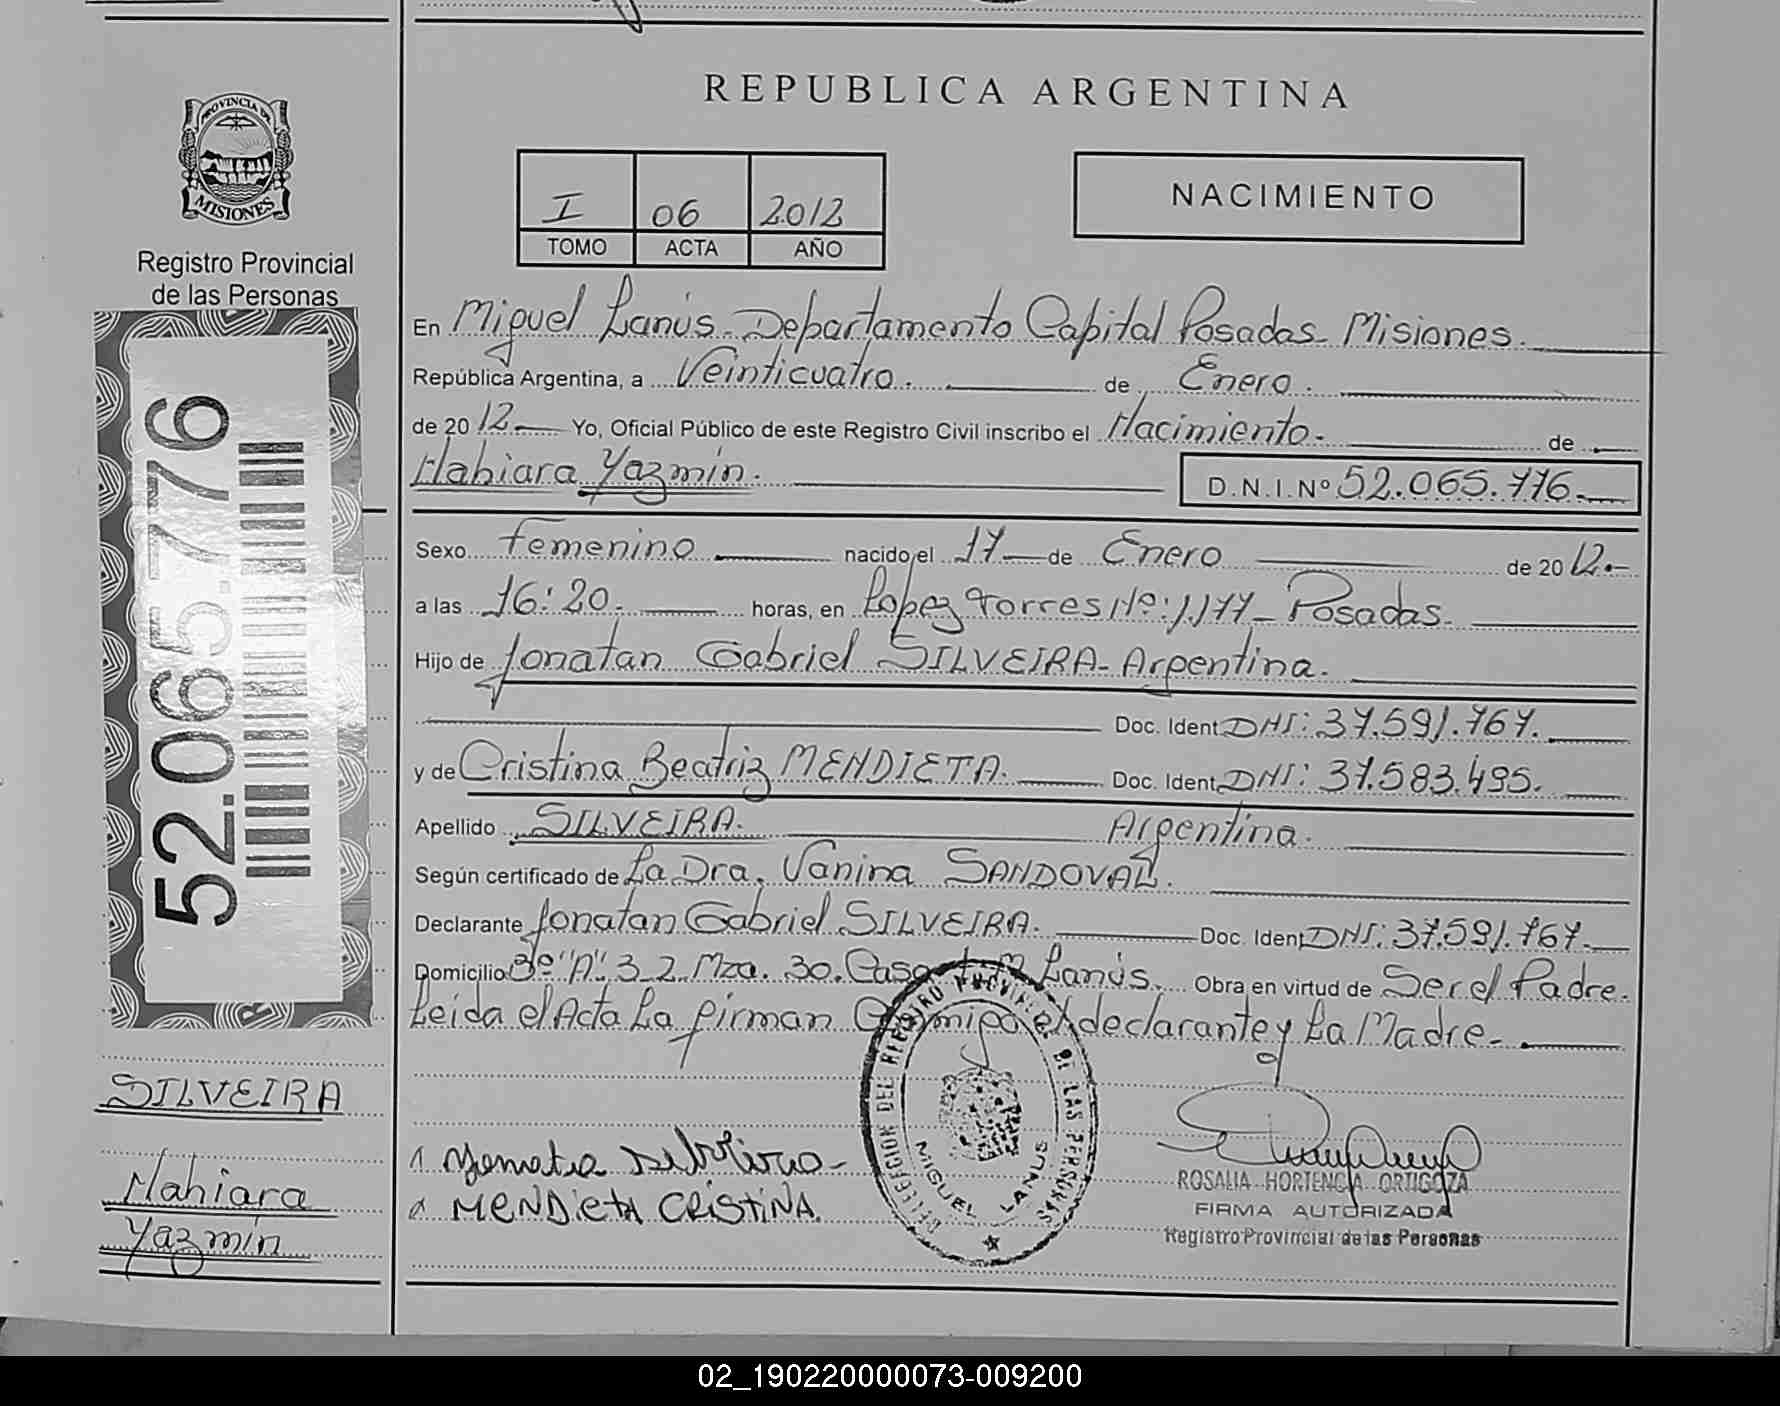 REPUBLICA ARGENTINA
PROVINCIA DE
MISIONES
Registro Provincial
de las Personas
I 06 2012
TOMO ACTA AÑO
NACIMIENTO
En Miguel Lanús. Departamento Capital Posadas. Misiones.
República Argentina, a Veinticuatro. de Enero.
de 2012. Yo, Oficial Público de este Registro Civil inscribo el Nacimiento. de
Nahiara Yazmín. D.N.I. Nº 52.065.776.
52.065.776
Sexo Femenino nacido el 17 de Enero de 2012.-
a las 16:20. horas, en Lopez Torres Nº: 1.177- Posadas.
Hijo de Jonatan Gabriel SILVEIRA- Argentina.
Doc. Ident DNI: 37.591.767.
y de Cristina Beatriz MENDIETA. Doc. Ident DNI: 37.583.495.
Apellido SILVEIRA. Argentina.
Según certificado de La Dra. Vanina SANDOVAL.
Declarante Jonatan Gabriel SILVEIRA. Doc. Ident DNI: 37.591.767.
Domicilio 3º "A" 32 Mza. 30. Casa M. Lanús. Obra en virtud de Ser el Padre.
Leida el Acta La firman Conmigo el declarante y La Madre.
SILVEIRA
Nahiara
Yazmín
MENDIETA CRISTINA.
DELEGACION DEL REGISTRO PROVINCIAL DE LAS PERSONAS
MIGUEL LANUS
ROSALIA HORTENCIA ORTIGOZA
FIRMA AUTORIZADA
Registro Provincial de las Personas
02_190220000073-009200